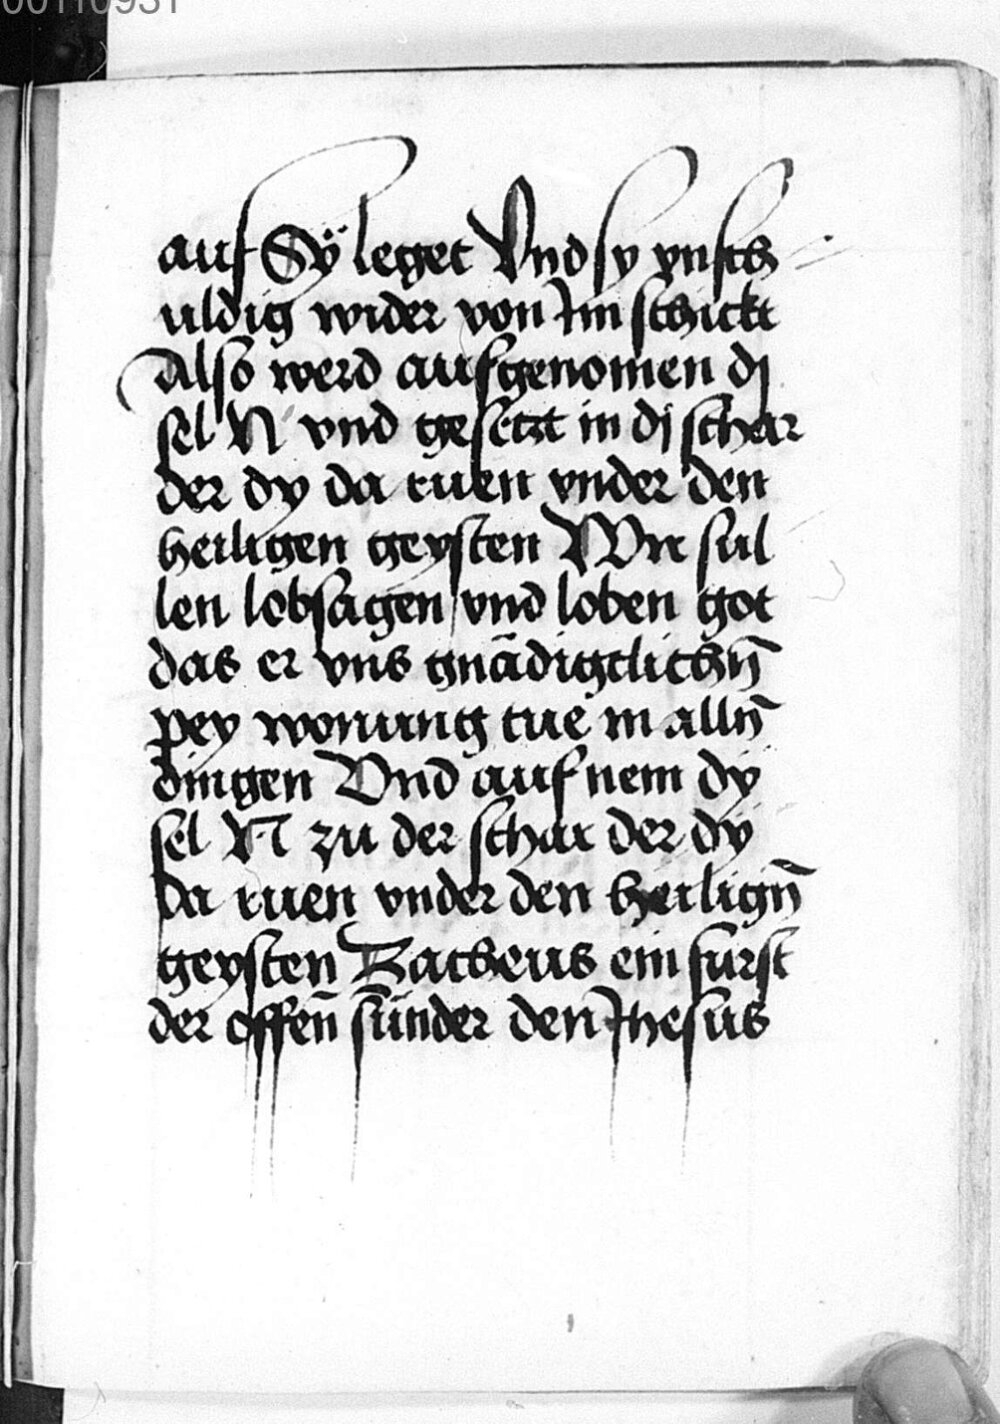 00110931
auf Sÿ leget Vnd sy vnsch
uldig wider von Im schickt
Also werd aufgenomen dj
sel N vnd gesetzt in dj schar
der dy da ruen vnder den
heiligen geysten Wir sul
len lobsagen vnd loben got
das er vns gnädigclichn̄
pey wonung tue in alln̄
dingen Vnd auf nem dy
sel N zu der schar der dy
da ruen vnder den heilign̄
geysten Zacheus ein furst
der offen̄ sünder den Jhesus